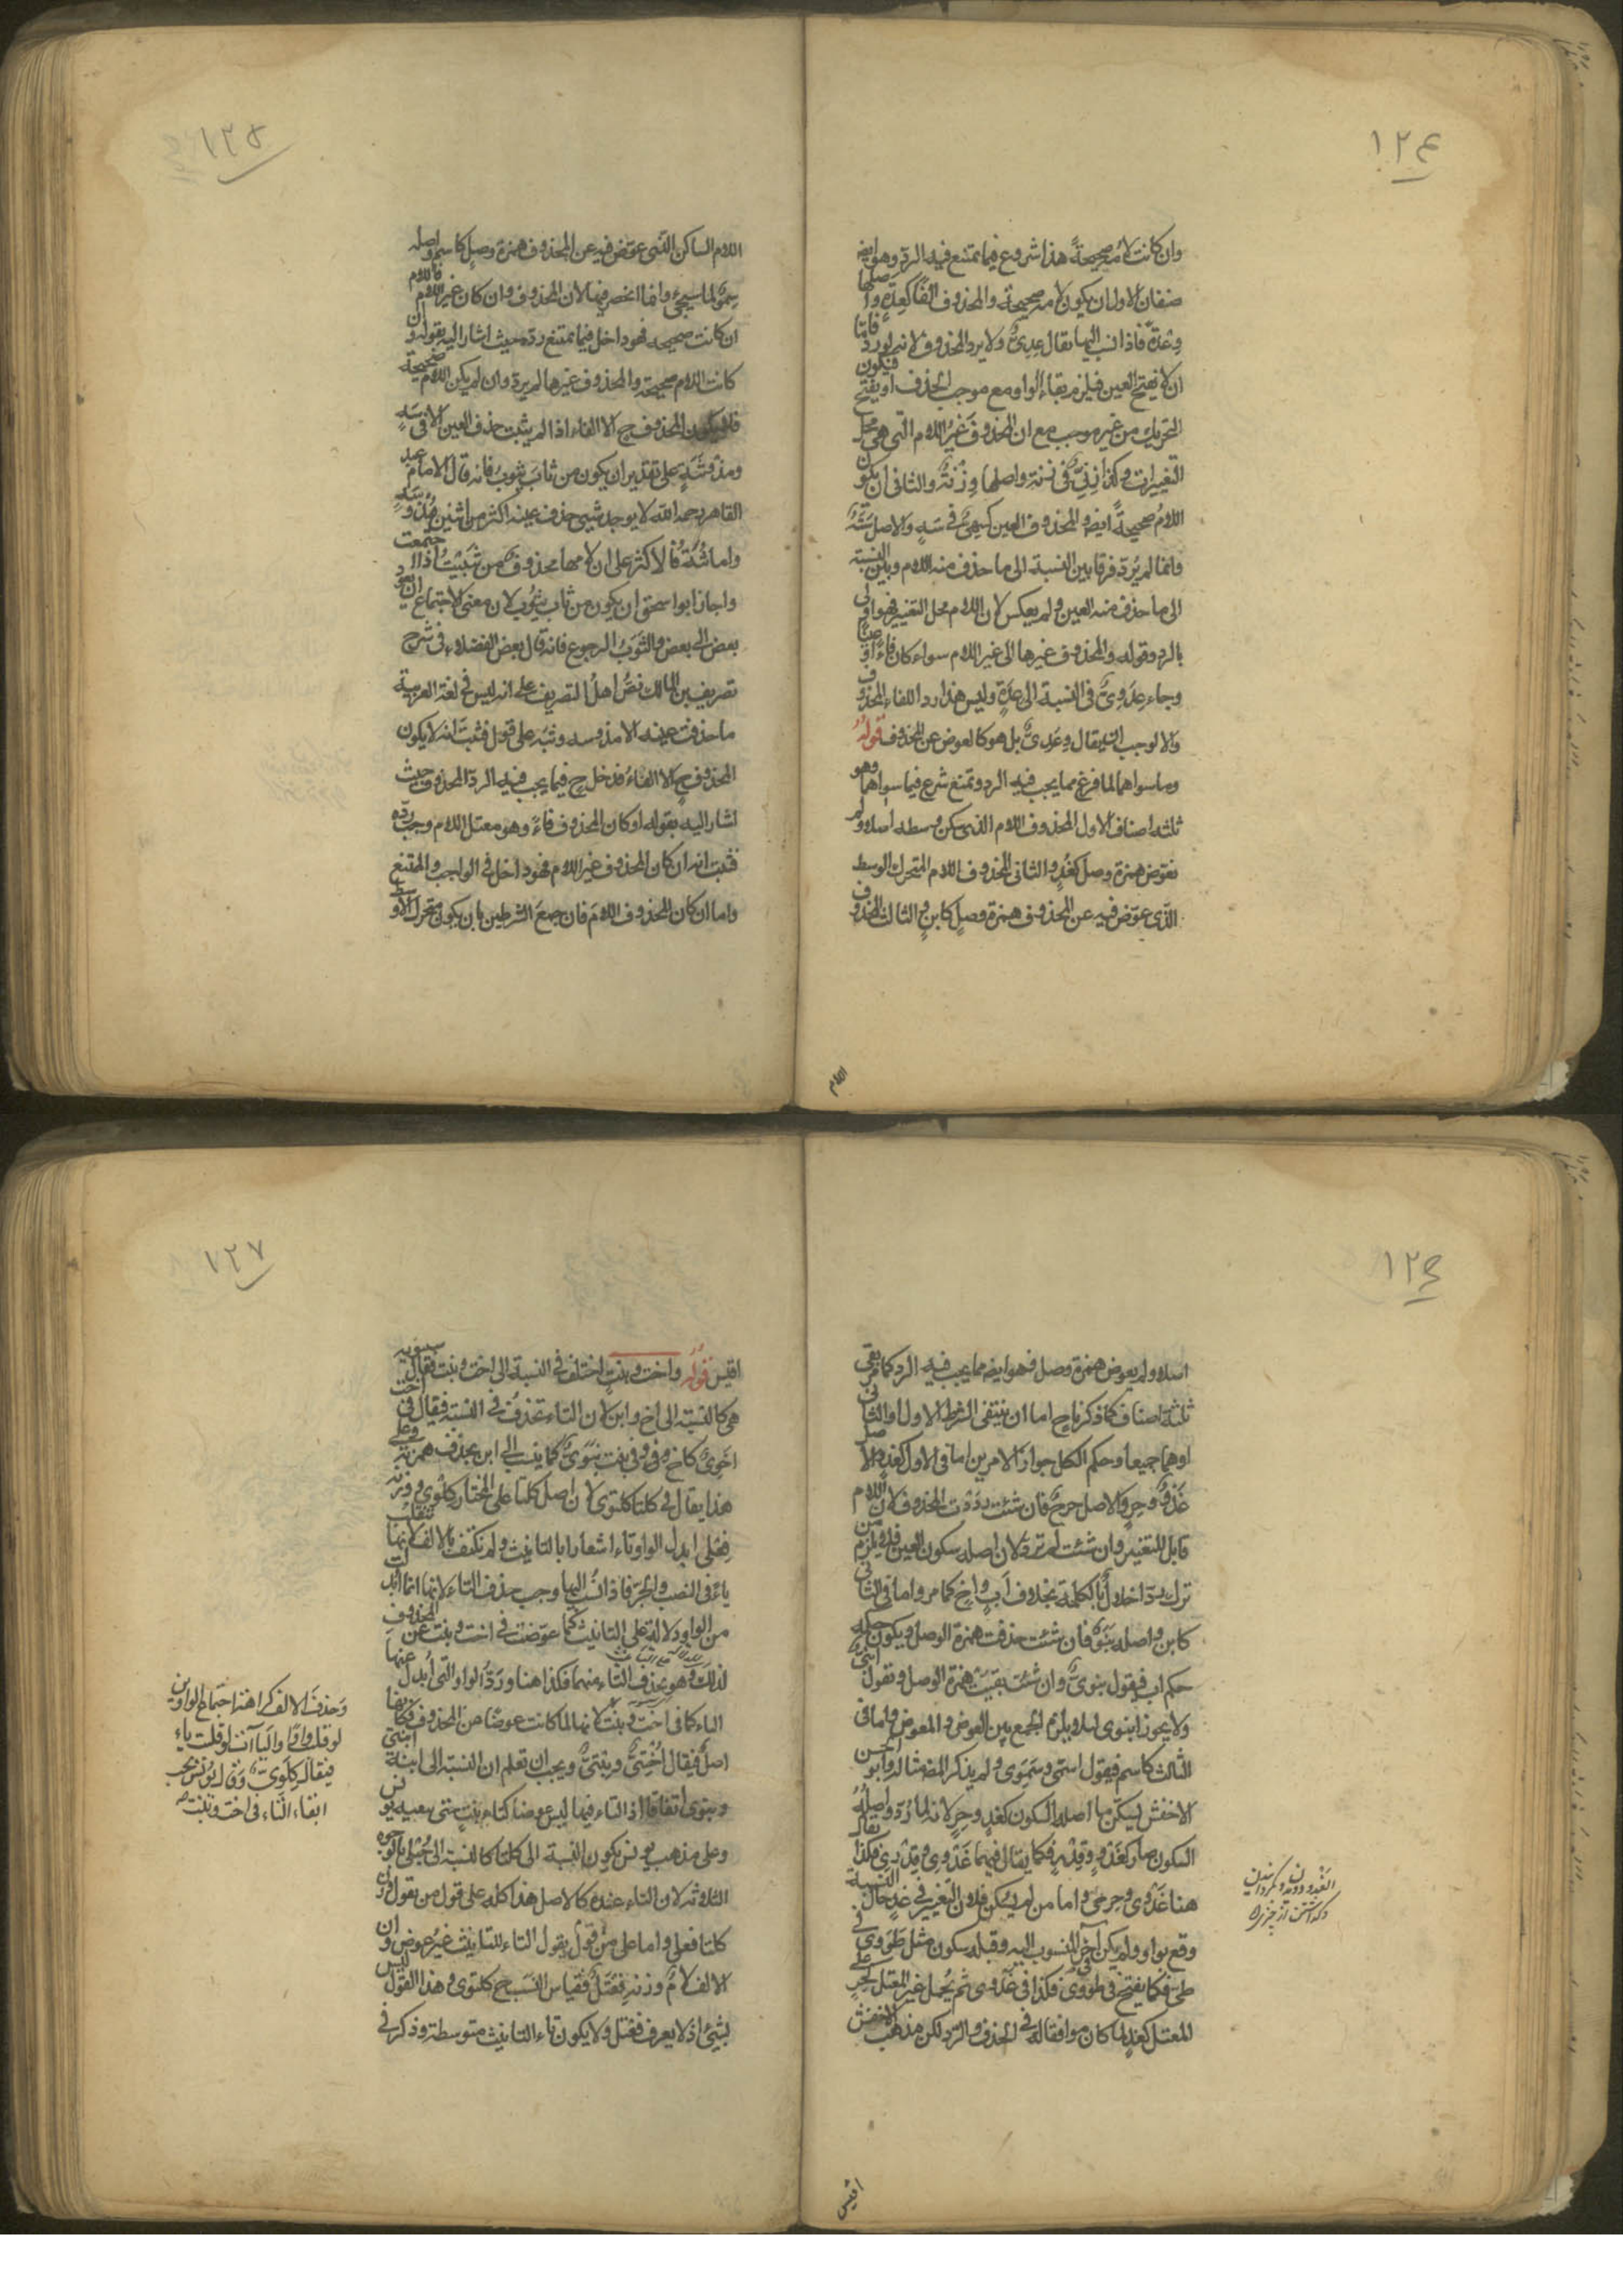 ١٢٤
وان كانت لامه صحيحةً هذا شروع فيما تمتنع فيه الرد وهو ايضا
صنفان الاول ان يكون لامه صحيحة والمحذوف الفاء كعِدَةٍ واصلها
وِعْدَةٌ فاذا نسب اليها يقال عِدِيٌّ ولا يرد المحذوف لانه لو رد فاما
ان لا يفتح العين فيلزم بقاء الواو مع موجب الحذف او يفتح فيكون
التحريك من غير موجب مع ان المحذوف غيرُ اللام التي هي محل
التغييرات وكذا زِنِيٌّ في زنة واصلها وِزْنَةٌ والثاني ان يكون
اللامُ صحيحةً ايضا والمحذوف العين كسَهِيٍّ في سَهٍ والاصل سَتَهٌ
وانما لم يُرَدّ فرقا بين النسبة الى ما حذف منه اللام وبين النسبة
الى ما حذف منه العين ولم يعكس لان اللام محل التغيير فهو اولى
بالرد وقوله والمحذوف غيرها الى غير اللام سواء كان فاءً او عينًا
وجاء عِدَوِيٌّ في النسبة الى عِدَةٍ وليس هذا ردا للفاء المحذوف
والا لوجب ان يقال وِعَدِيٌّ بل هو كالعوض عن المحذوف قولُهُ
وما سواهما لما فرغ مما يجب فيه الرد وتمتنع شرع فيما سواهما وهو
ثلثه اصناف الاول المحذوف اللام الذى سكن وسطه اصلا ولم
تعوّض همزة وصل كغَدٍ والثانى المحذوف اللام المتحرك الوسط
الّذى عوّض فيه عن المحذوف همزة وصلٍ كابنٍ والثالث المحذوف
اللام
١٢٥
اللام الساكن الذى عوّض فيه عن المحذوف همزة وصلٍ كاسم واصله
سِمْوٌ لما سيجئ وانما انحصر فيها لان المحذوف وان كان غير اللام فاللام
ان كانت صحيحه فهو داخل فيما تمتنع ردّه حيث اشار اليه بقوله وان
كانت اللام صحيحة والمحذوف غيرها لم يرد وان لم يكن اللام صحيحة
فلا يكون المحذوف ح الا الفاء اذا لم يثبت حذف العين الا فى سَهٍ
ومذ وثُبَةٍ على تقدير ان يكون من ثابَ يثوبُ فانه قال الامام عبد
القاهر رحمه الله لا يوجد شيئ حذف عينه اكثر من اثنين مُذْ وسَهٍ
واما ثُبَةٌ فالاكثر على ان لامها محذوف من ثَبَّيْتُ اذا اجتمعت
واجاز ابو اسحق ان يكون من ثاب يثوب لان معنى الاجتماع ان يعود
بعض الى بعض والثَوْبُ الرجوع فانه قال بعض الفضلاء فى شرح
تصريف بن المالك نصُّ اهلُ التصريف على انه ليس فى لغة العربية
ما حذفت عينه الا مذ وسه وثبه على قول فثبت انه لا يكون
المحذوف ح الا الفاءُ فدخل ح فيما يجب فيه الرد المحذوف حيث
اشار اليه بقوله او كان المحذوف فاءً وهو معتل اللام وجب ردّه
فثبت انه ان كان المحذوف غير اللام فهو داخل فى الواجب والممتنع
واما ان كان المحذوف اللامَ فان جمعَ الشرطين بان يكون متحرك الاوسط
١٢٦
اصلا ولم يعوض همزة وصل فهو ايضا مما يجب فيه الرد كما مر بقى
ثلثة اصناف كما ذكرنا ح اما ان ينتفى الشرط الاول او الثانى
او هما جميعا وحكم الكل جواز الامرين اما فى الاول كغد اصله
غَدْوٌ وحِرٍ والاصل حِرْحٌ فان شئت رددت المحذوف لان اللام
قابل للتغيير وان شئت لم ترد لان اصله سكون العين فلم يلزم من
ترك رد اخلالٌ بالكلمة بخلاف اَبٍ واخٍ كما مر واما فى الثانى
كابن واصله بَنَوٌ فان شئت حذفت همزة الوصل ويكون حكمه
حكم اب فيقول بنوىٌّ وان شئت بقيتَ همزة الوصل وتقول ابنىٌّ
ولا يجوز ابنوى لئلا يلزم الجمع بين العوض والمعوض واما فى
الثالث كاسم فيقول اسمى وسَمَوِى ولم يذكر المص مثاله وابو الحسن
الاخفش يسكّن ما اصله السكون كغدٍ وحِرٍ لانه لما رُدّ واصلُهُ
السكون صار كغَدْوٍ فكما يقال فيهما غَدْوِى فكذا يقال
هنا غَدْوِى وحِرْحِى واما من لم يسكن فلان التغيير فى غدٍ حال النسبة
وقع بواو ولم يكن آخر المنسوب اليه وقبله سكون مثل طَوَوِى فى
طى فكما يفتح فى طووى فكذا فى غَدَوى ثم يُحمل غير المعتل كحِرٍ على
المعتل كغدٍ لما كان موافقا له فى الحذف والرد لكن مذهب الاخفش
اقيس
١٢٧
اقيس قولُه واخت وبنت اختلف فى النسبة الى اخت وبنت فقال سيبويه
هى كالنسبة الى اخ وابن لان التاء تحذف فى النسبة فيقال فى اخت
اخَوِىٌّ كاخ وفى بنت بَنَوِىٌّ كما ينسب الى ابن بحذف همزته وعلى
هذا يقال فى كلتا كلتوى لان اصل كلتا على المختار كلوى وزنه
فِعْلى ابدل الواو تاء اشعارا بالتانيث ولم تكتف بالالف لانها تنقلب
ياءً فى النصب والجر فاذا نُسب اليها وجب حذف التاء لانها انما ابدلت
من الواو دلالة على التانيث كما عوّضت فى اخت وبنت عن المحذوف
لذلك وهو بحذف التاء منهما فكذا هنا ورَدُّ الواو التى اُبدل عنها
التاء كما فى اختٍ وبنتٍ لانها لما كانت عوضًا من المحذوف
اصلٌ فيقال اُخْتِىٌّ وبنتىٌّ ويجب ان تعلم ان النسبة الى ابنة ابنى
وبنوى اتفاقا اذ التاء فيها ليس عوضا كتاء بنتٍ
وعلى مذهب يونس يكون النسبة الى كلتا كالنسبة الى حُبْلى بالوجوه
الثلاثه لان التاء عنده كالاصل هذا كله على قول من يقول وزن
كلتا فعلى واما على من قول يقول التاء للتانيث غيرُ عوض وان
الالف لامٌ وزنه فِعْتَلٌ فقياس النسب ح كلتوى وهذا القول ليس
بشيئ اذ لا يعرف فعتل ولا يكون تاء التانيث متوسطة وذكر فى
وَحذفَ الالف كراهة اجتماع الواوين
لو قلت واوًا واليا آت لو قلت ياء
فيقال كِلَوِىّ وقال يونس يجب
ابقاء التّاء فى اخت وبنت